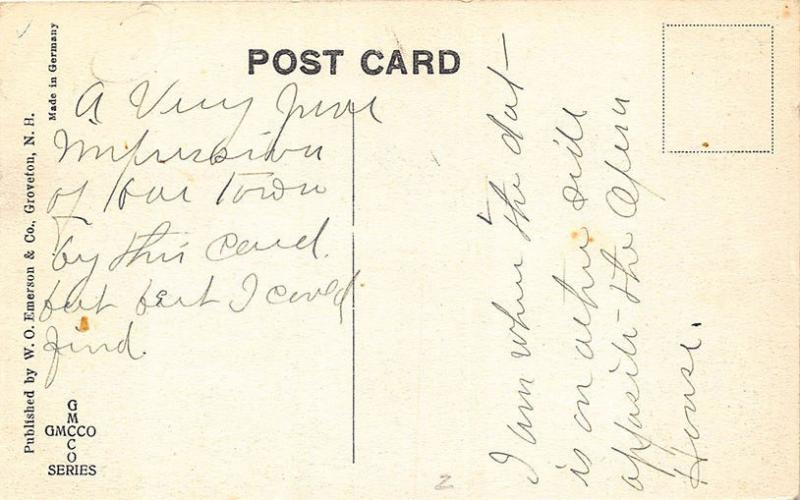 POST CARD
Made in Germany
Published by W. O. Emerson & Co., Groveton, N. H.
A Very poor
impression
of our Town
by this card.
but best I could
find.
I am where the dot
is on other side
opposite the Opera
House.
G
M
GMCCO
C
O
SERIES
2